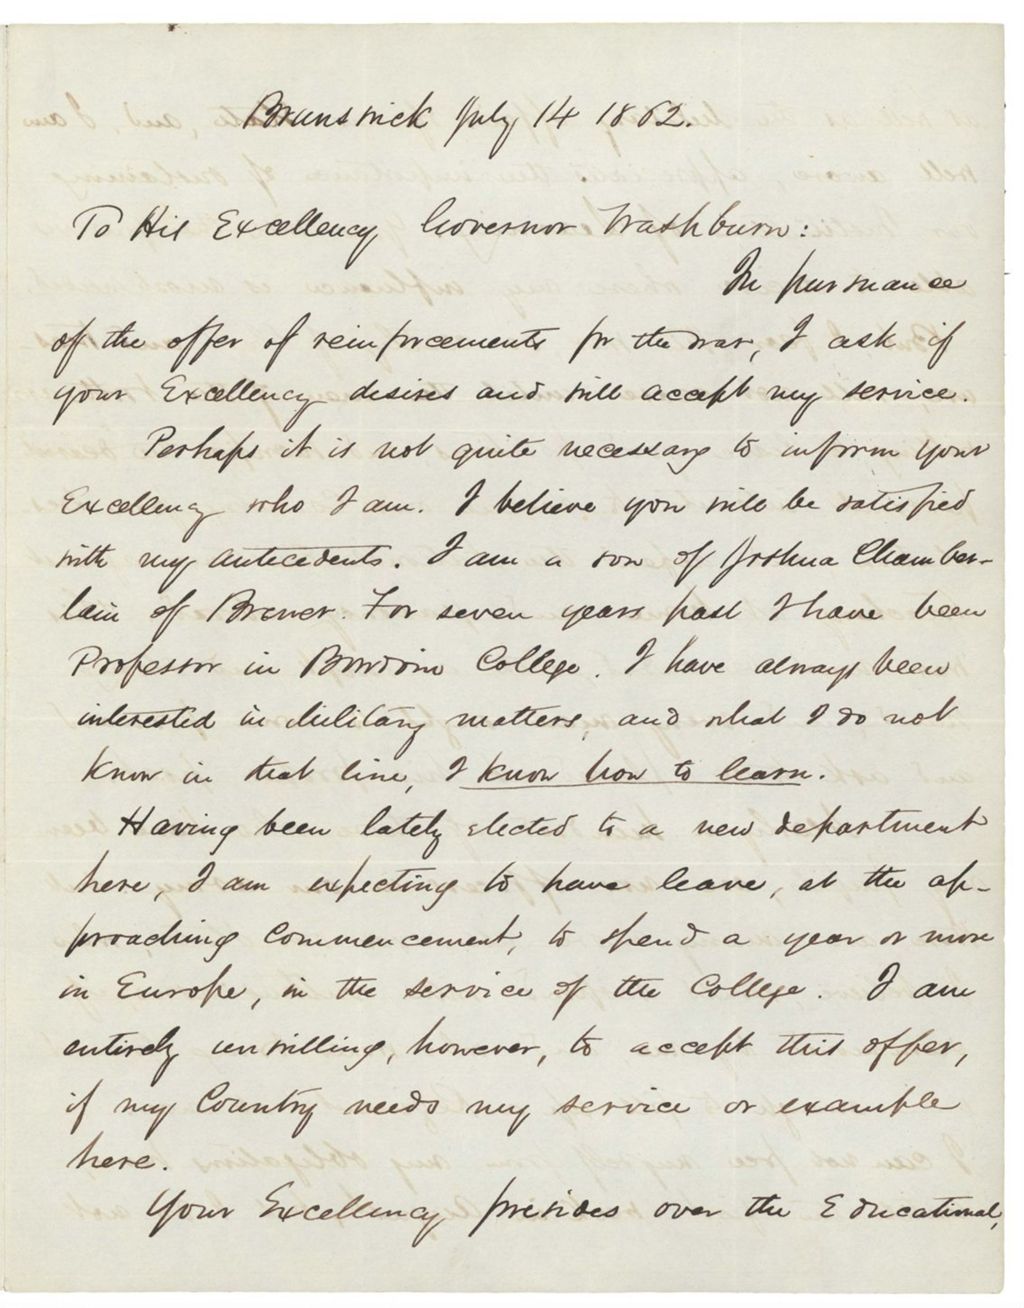 Brunswick July 14 1862.
To His Excellency Governor Washburn:
In pursuance
of the offer of reinforcements for the war, I ask if
your Excellency desires and will accept my service.
Perhaps it is not quite necessary to inform your
Excellency who I am. I believe you will be satisfied
with my antecedents. I am a son of Joshua Chamber-
lain of Brewer. For seven years past I have been
Professor in Bowdoin College. I have always been
interested in Military matters, and what I do not
know in that line, I know how to learn.
Having been lately elected to a new department
here, I am expecting to have leave, at the ap-
proaching Commencement, to spend a year or more
in Europe, in the service of the College. I am
entirely unwilling, however, to accept this offer,
if my Country needs my service or example
here.
Your Excellency presides over the Educational,